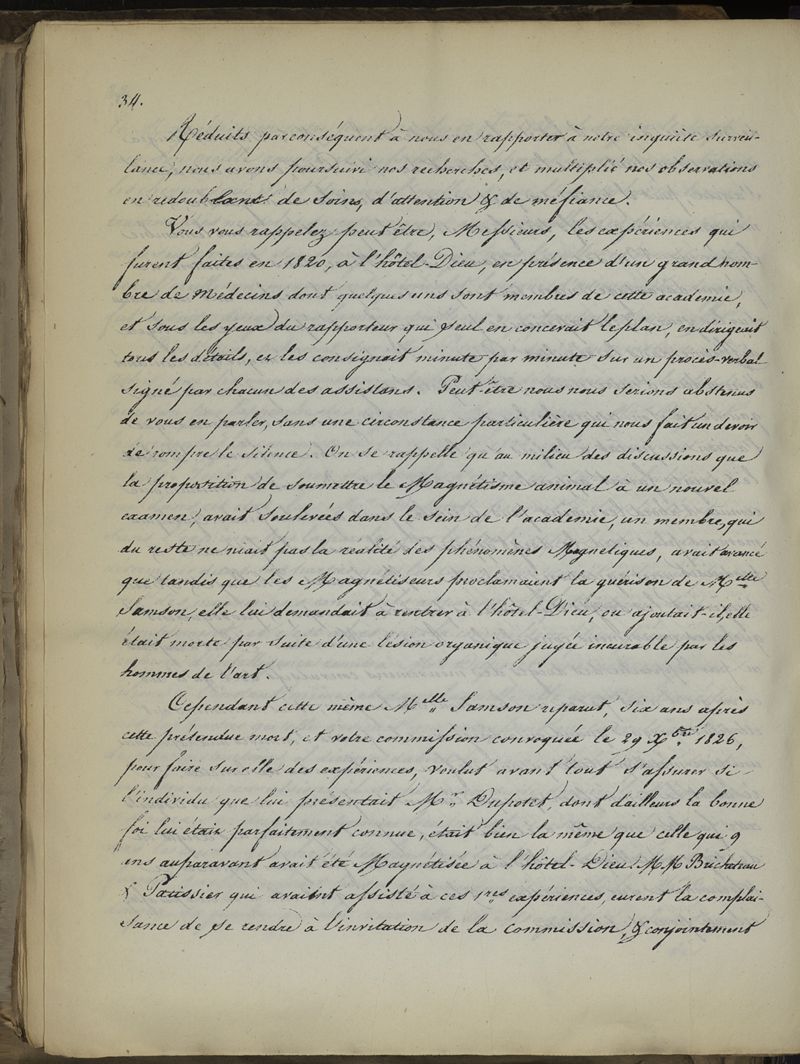 34.
Réduits par conséquent à nous en rapporter à notre inquiète surveil-
lance, nous avons poursuivi nos recherches, et multiplié nos observations
en redoublant de soins, d'attention & de méfiance.
Vous vous rappelez peut être, Messieurs, les expériences qui
furent faites en 1820, à l'hôtel-Dieu, en présence d'un grand nom-
bre de Médecins dont quelques uns sont membres de cette academie,
et sous les yeux du rapporteur qui seul en concevait le plan, en dirigeait
tous les détails, et les consignait minute par minute sur un procès-verbal
signé par chacun des assistans. Peut être nous nous serions abstenus
de vous en parler, sans une circonstance particulière qui nous fait un devoir
de rompre le silence. On se rappelle qu'au milieu des discussions que
la proposition de soumettre le Magnétisme animal à un nouvel
examen, avait soulevées dans le sein de l'academie, un membre, qui
du reste ne niait pas la réalité des phénomènes Magnétiques, avait avancé
que tandis que les Magnétiseurs proclamaient la guérison de Melle
Samson, elle lui demandait à rentrer à l'hôtel-Dieu, ou ajoutait-il, elle
était morte par suite d'une lésion organique jugée incurable par les
hommes de l'art.
Cependant cette même Melle Samson reparut, six ans après
cette prétendue mort, et votre commission convoquée le 29 Xbre 1826,
pour faire sur elle des expériences, voulut avant tout s'assurer si
l'individu que lui présentait Mr. Dupotet, dont d'ailleurs la bonne
foi lui était parfaitement connue, était bien la même que celle qui 9
ans auparavant avait été Magnétisée à l'hôtel-Dieu. M.M Bricheteau
& Patissier qui avaient assisté à ces 1res expériences, eurent la complai-
sance de se rendre à l'invitation de la commission, & conjointement